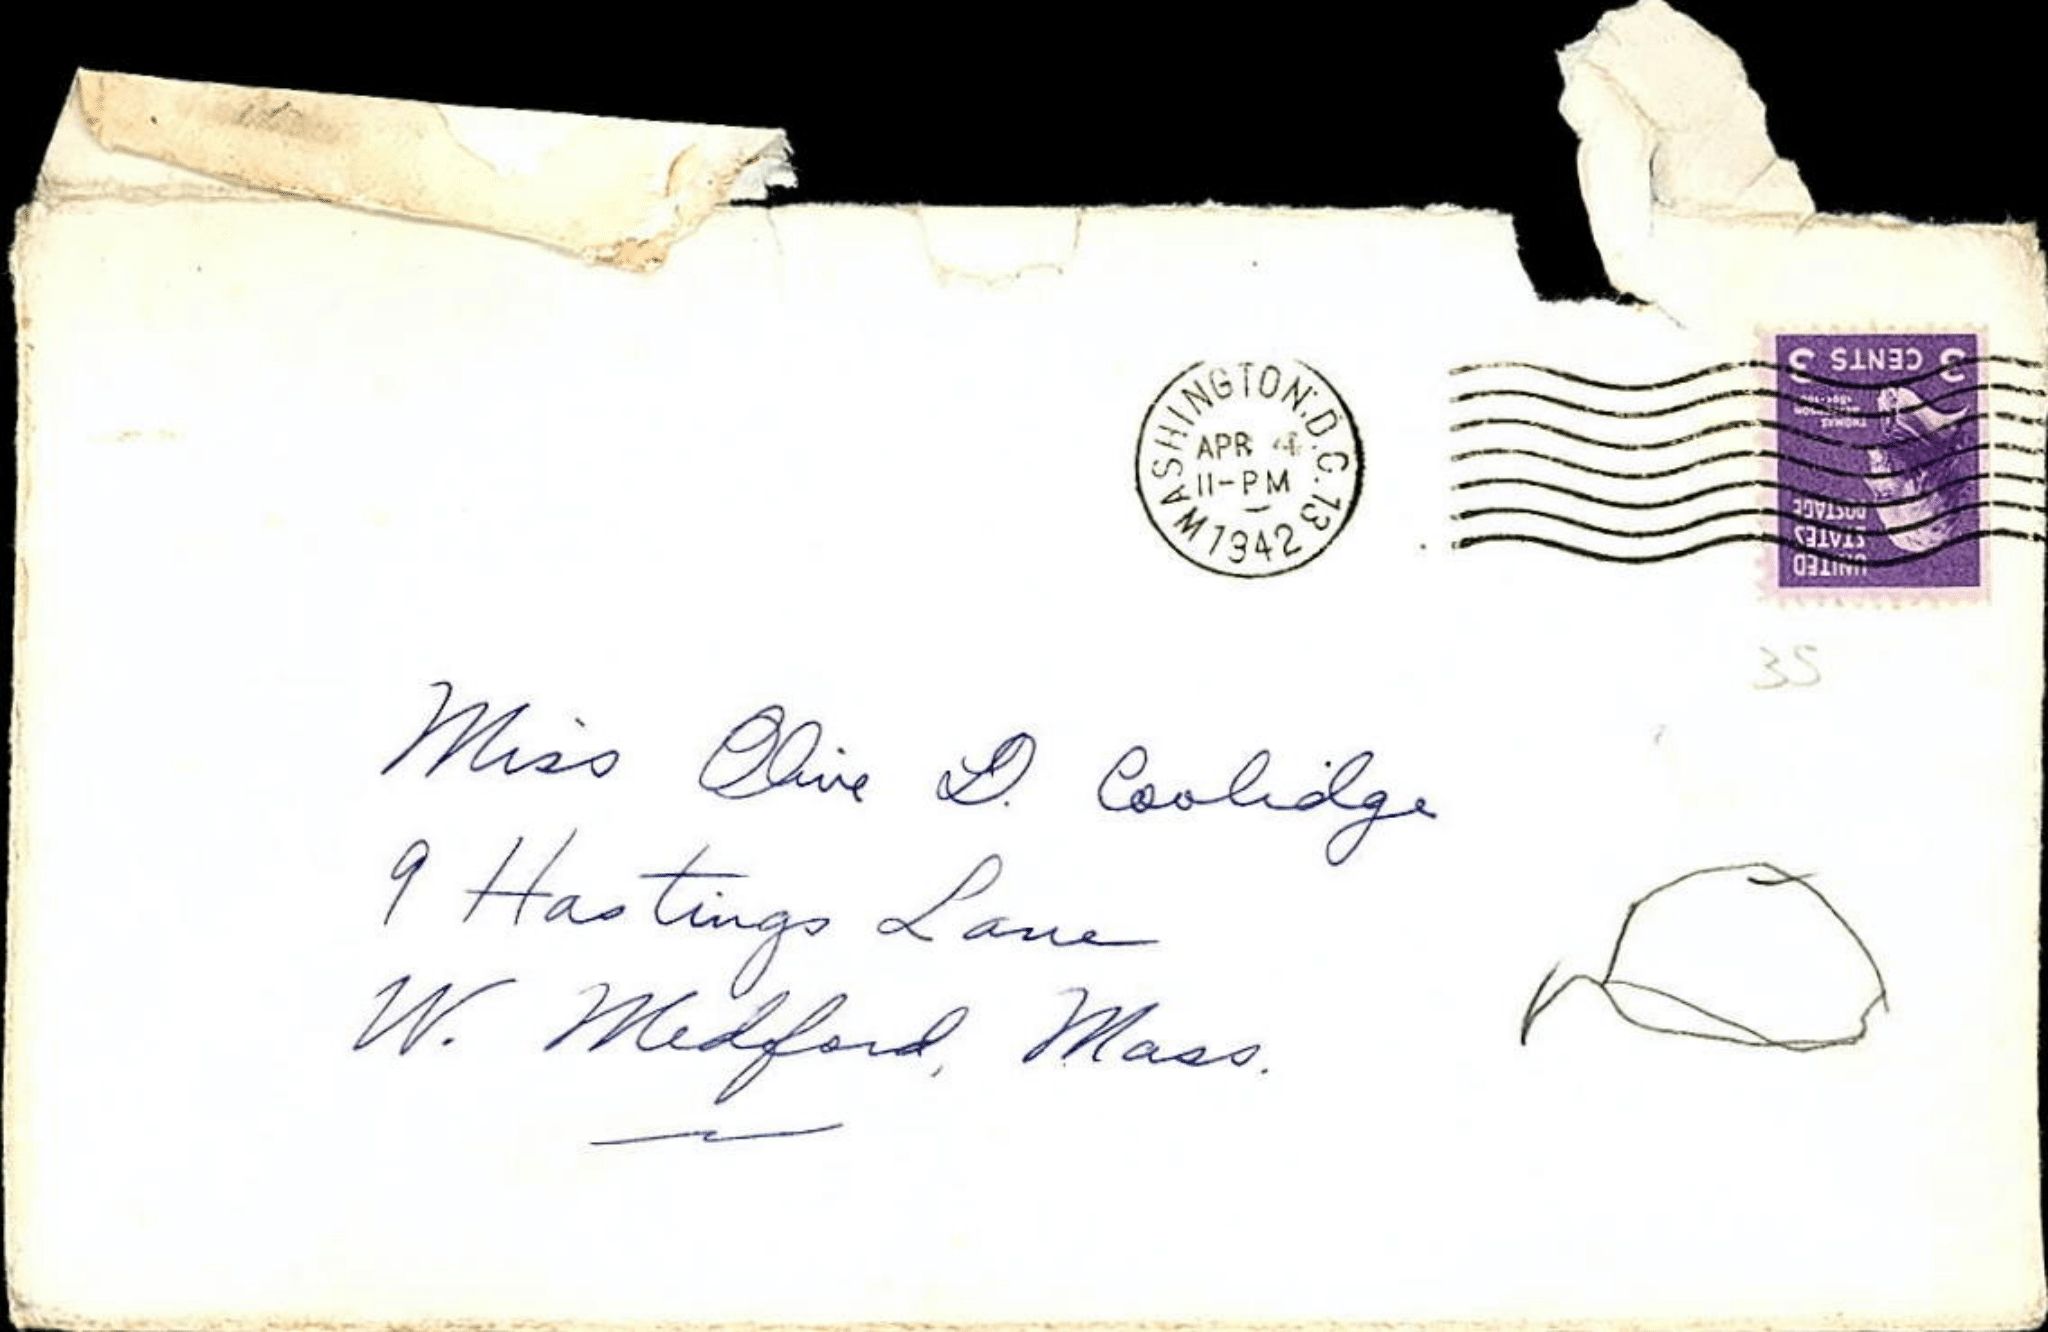 WASHINGTON, D.C. 13
APR 4
11-PM
1942
3 CENTS 3
THOMAS
JEFFERSON
UNITED
STATES
POSTAGE
35
Miss Olive D. Coolidge
9 Hastings Lane
W. Medford, Mass.